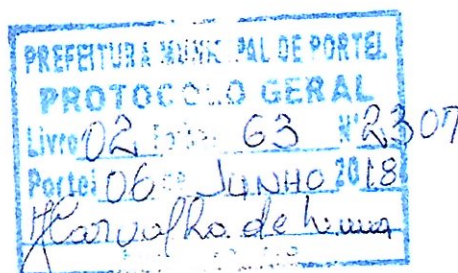 PREFEITURA MUNICIPAL DE PORTEL
PROTOCOLO GERAL
Livro 02 63 Nº 2307
Portel 06 JUNHO 2018
Carvalho de